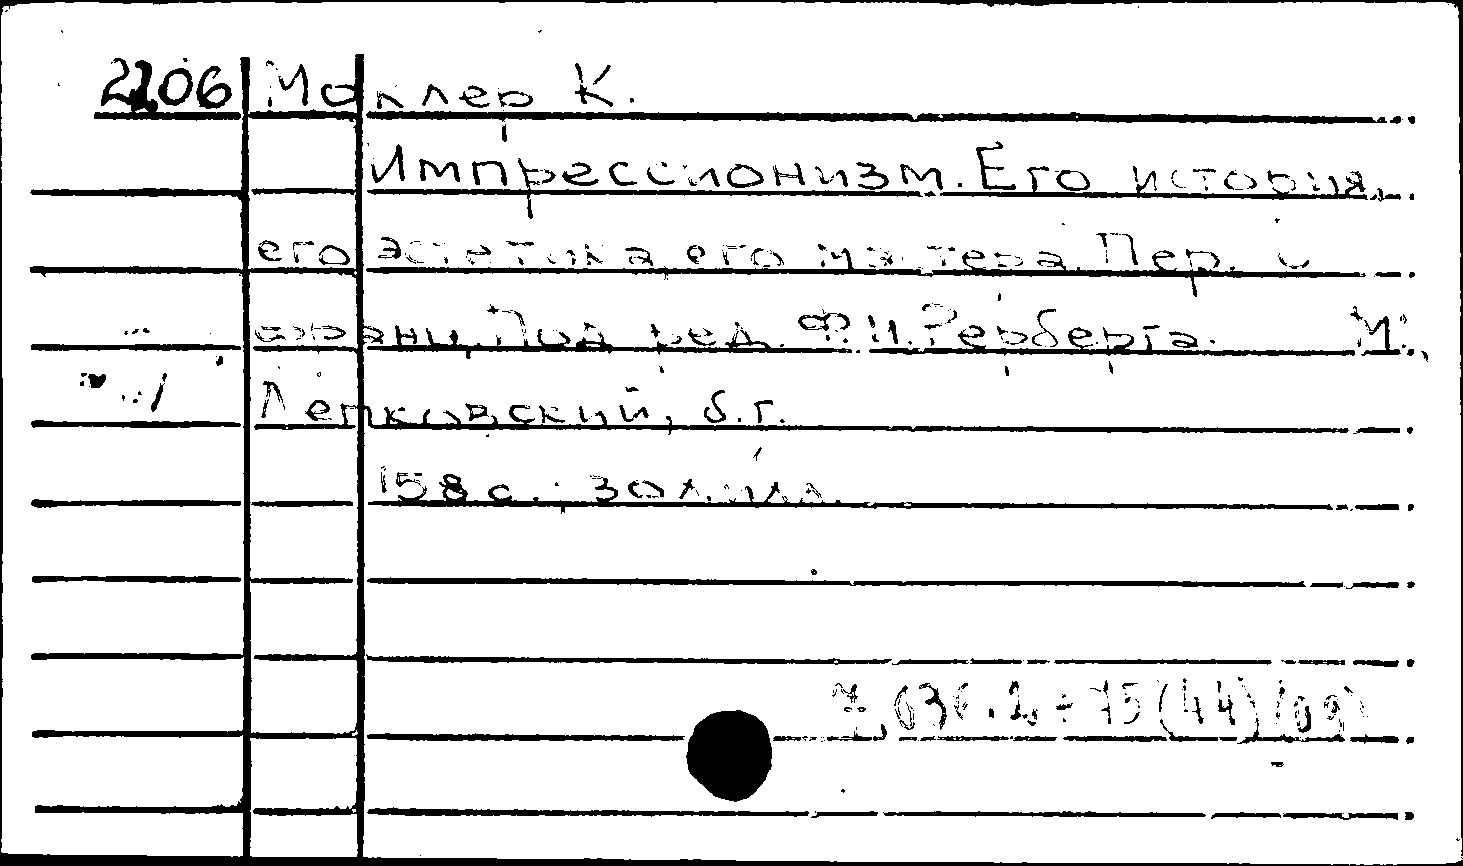 2206 Моклер К.
Импрессионизм. Его история,
его эстетика, его мастера. Пер. с
франц. Под ред. Ф.И. Рерберга. М.,
Лепковский, б.г.
158 с.; 30 л. илл.
75(44)(09)